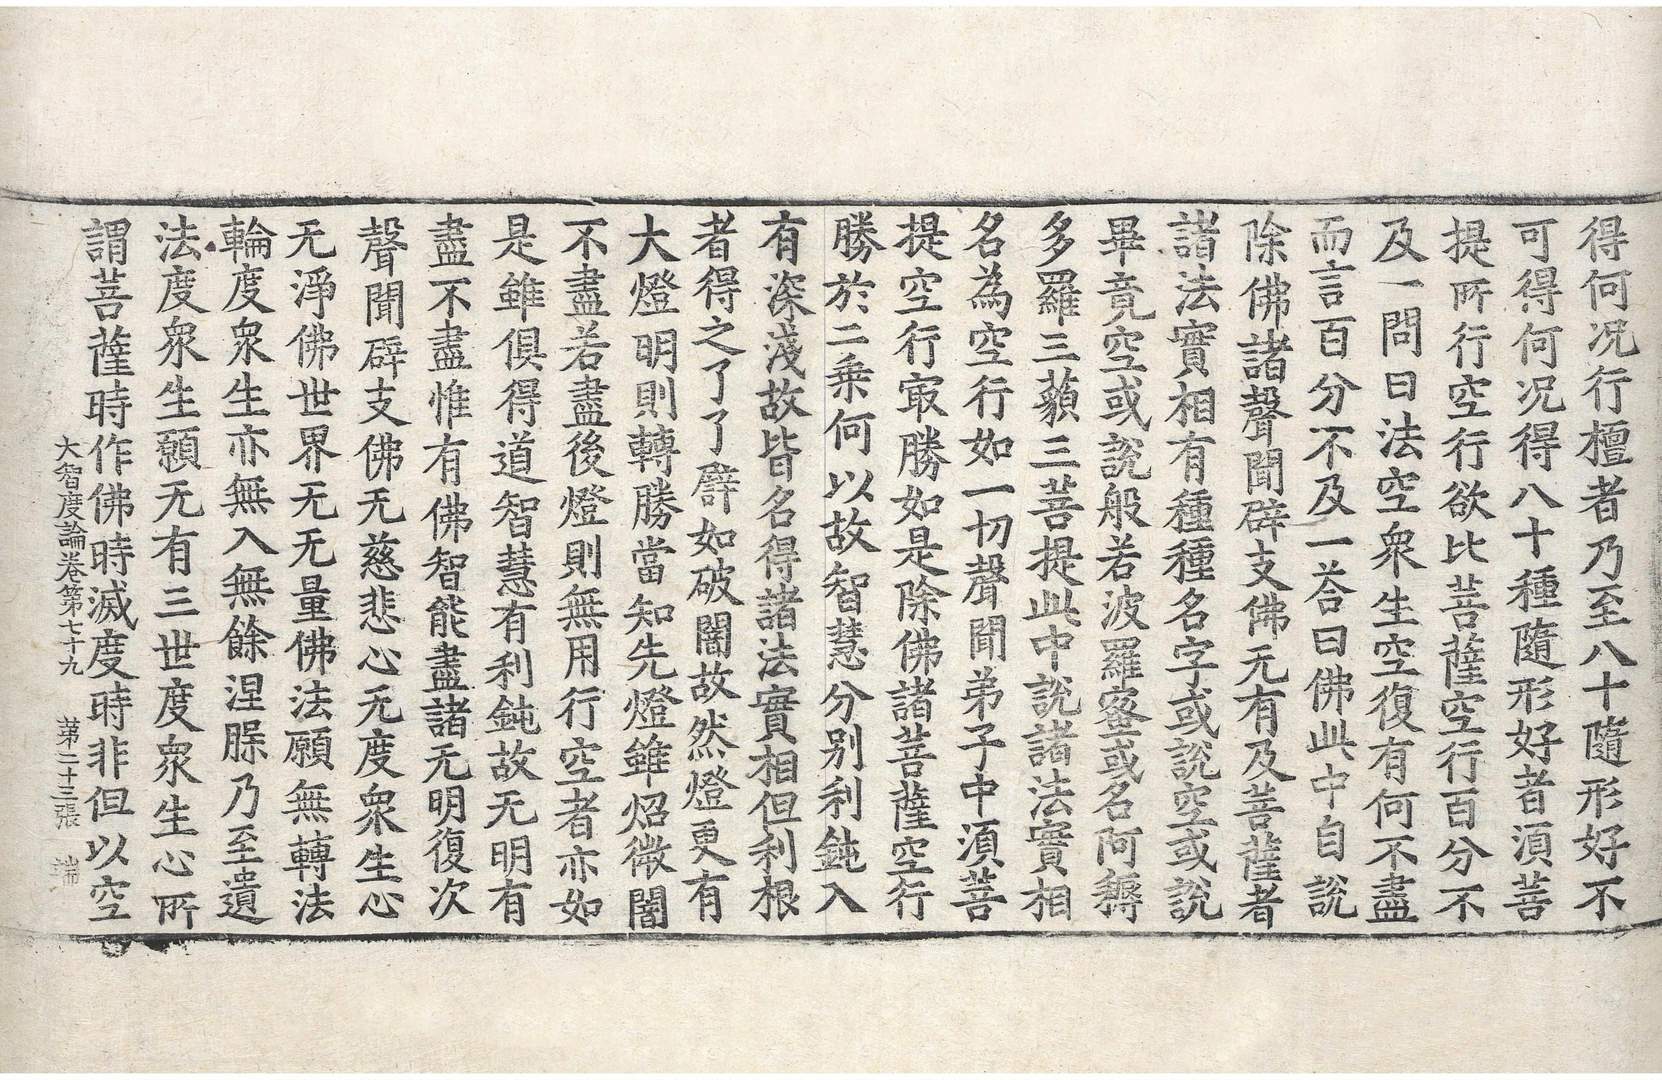 得何況行檀者乃至八十隨形好不
可得何況得八十種隨形好者湏菩
提所行空行欲比菩薩空行百分不
及一問曰法空衆生空復有何不盡
而言百分不及一荅曰佛此中自說
除佛諸聲聞辟支佛无有及菩薩者
諸法實相有種種名字或說空或說
畢竟空或說般若波羅蜜或名阿耨
多羅三藐三菩提此中說諸法實相
名為空行如一切聲聞弟子中湏菩
提空行冣勝如是除佛諸菩薩空行
勝於二乗何以故智慧分別利鈍入
有深淺故皆名得諸法實相但利根
者得之了了譬如破闇故然燈更有
大燈明則轉勝當知先燈雖炤微闇
不盡若盡後燈則無用行空者亦如
是雖俱得道智慧有利鈍故无明有
盡不盡惟有佛智能盡諸无明復次
聲聞辟支佛无慈悲心无度衆生心
无淨佛世界无无量佛法願無轉法
輪度衆生亦無入無餘涅槃乃至遺
法度衆生願无有三世度衆生心所
謂菩薩時作佛時滅度時非但以空
大智度論卷第七十九 苐二十三張 端